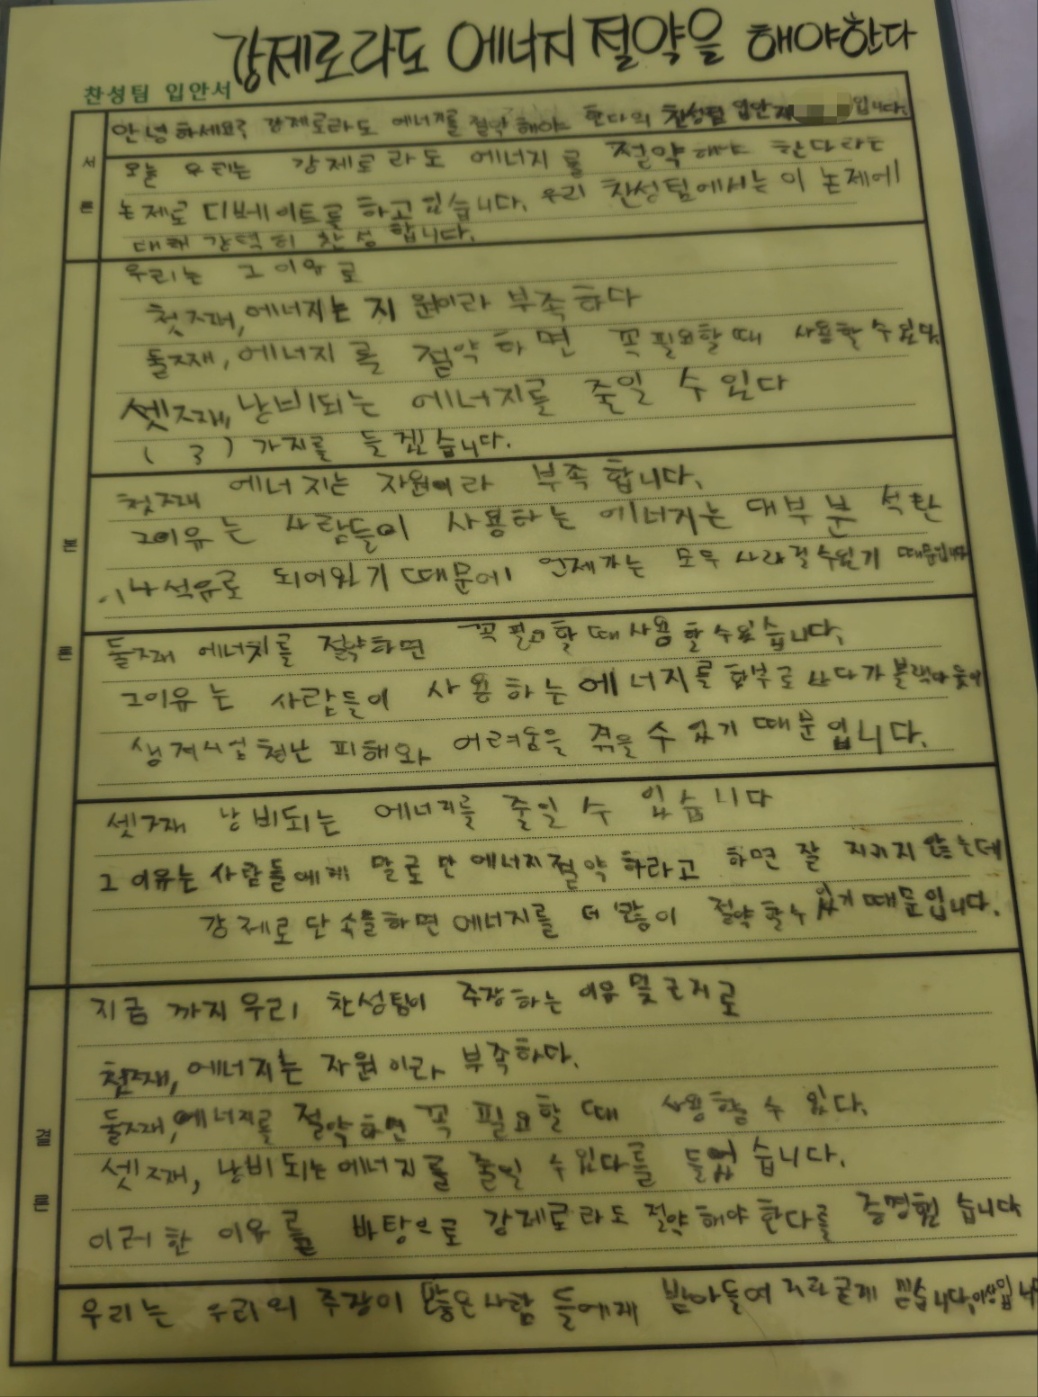 강제로라도 에너지 절약을 해야한다
찬성팀 입안서
서론
안녕하세요? 강제로라도 에너지를 절약해야 한다의 찬성팀 입안자 입니다.
오늘 우리는 강제로라도 에너지를 절약해야 한다라는
논제로 디베이트를 하고 있습니다. 우리 찬성팀에서는 이 논제에
대해 강력히 찬성합니다.
본론
우리는 그 이유로
첫째, 에너지는 자원이라 부족하다
둘째, 에너지를 절약하면 꼭 필요할 때 사용할 수 있다
셋째, 낭비되는 에너지를 줄일 수 있다
( 3 ) 가지를 들겠습니다.
첫째 에너지는 자원이라 부족합니다.
그이유는 사람들이 사용하는 에너지는 대부분 석탄
이나 석유로 되어있기 때문에 언제가는 모두 사라질수있기 때문입니다
둘째 에너지를 절약하면 꼭 필요할 때 사용할 수 있습니다.
그이유는 사람들이 사용하는 에너지를 함부로 쓰다가 블랙아웃이
생겨서 엄청난 피해와 어려움을 겪을 수 있기 때문입니다.
셋째 낭비되는 에너지를 줄일 수 있습니다
그 이유는 사람들에게 말로만 에너지절약 하라고 하면 잘 지키지 않는데
강제로 단속을하면 에너지를 더 많이 절약할수 있기 때문입니다.
결론
지금 까지 우리 찬성팀이 주장하는 이유 및 근거로
첫째, 에너지는 자원이라 부족하다.
둘째, 에너지를 절약하면 꼭 필요할 때 사용할 수 있다.
셋째, 낭비되는 에너지를 줄일 수 있다를 들었습니다.
이러한 이유를 바탕으로 강제로라도 절약해야 한다를 증명했습니다
우리는 우리의 주장이 많은사람들에게 받아들여 지리라굳게 믿습니다. 이상입니